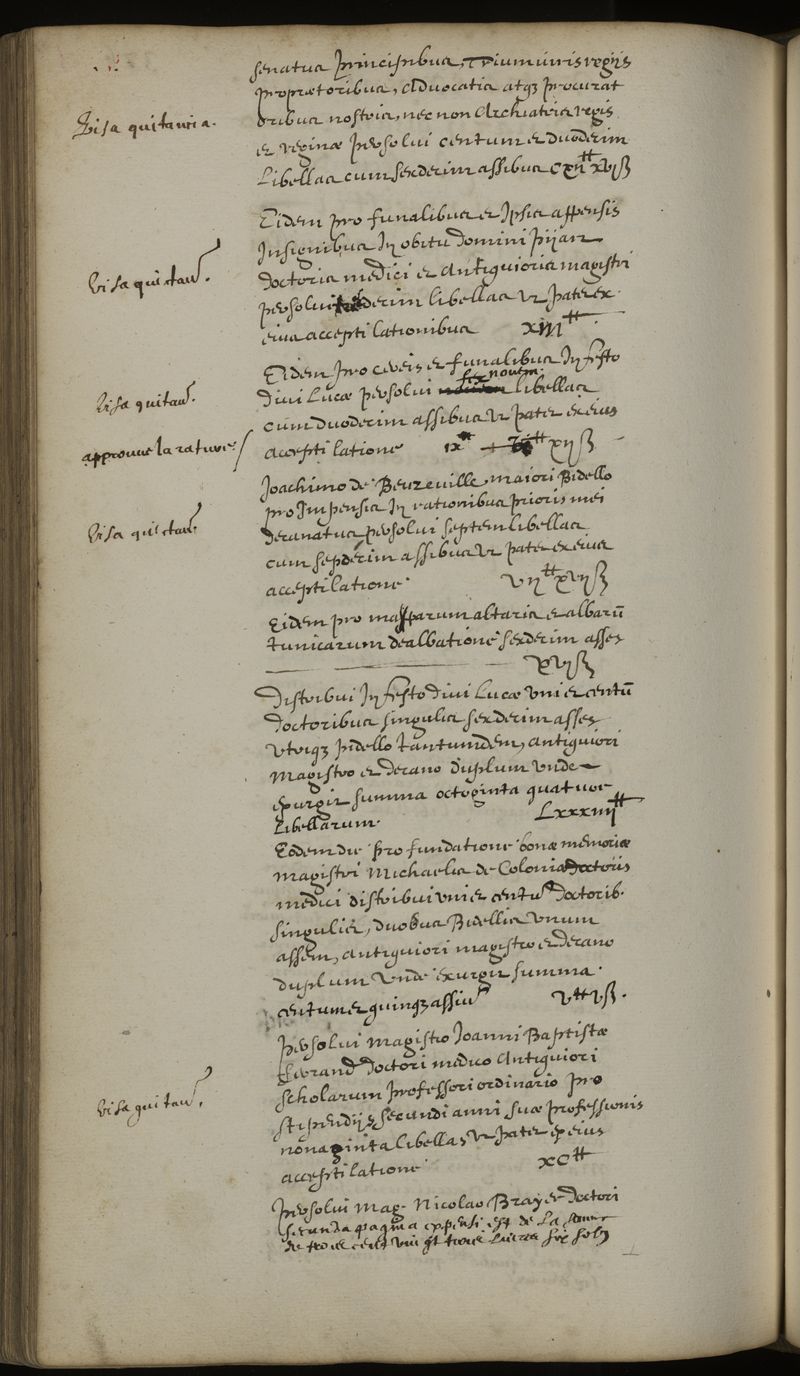 senatus principibus, Triumviris regiis
propraetoribus, Advocatis atq3 procurat
oribus nostris, nec non Archiatris regis
Visa quitancia.
et reginae persolui centum et duodecim
Libellas cum sexdecim assibus CXII# XVI ß
Eidem pro funalibus et Ipsis appensis
Insignibus In obitu Domini Pijart
Visa quictan.
doctoris medici et Antiquioris magistri
persolui decim libellas vt patet ex
eius acceptilationibus XIII#
Eidem pro cereis et funalibus In festo
Visa quitan.
divi Lucae persolui novem libellas
cum duodecim assibus vt patet ex eius
approuue la rature
acceptilatione IX# XII ß
Joachimo de Beuzeville, maiori Bidello
pro Impensis In rationibus prioris mei
Visa quictan.
decanatus persolui septem libellas
cum sepdecim assibus vt patet ex eius
acceptilatione. VII# XVII ß
Eidem pro mapparum altaris et albarū
tunicarum dealbatione sexdecim asses
XVI ß
Distribui In festo divi Lucae vni et centū
doctoribus singulis sexdecim asses
vtriq3 bidello tantumdem, antiquiori
magistro et decano duplum unde
exurgit summa octoginta quatuor
Libellarum. LXXXIIII#
Eodem die pro fundatione bonae memoriae
magistri Michaelis de Colonia doctoris
medici distribui vni et centū doctorib.
singulis, duobus Bidellis vnum
assem, antiquiori magistro et decano
duplum vnde exurgit summa
centum et quinq3 assiū V# V ß.
Persolui magistro Joanni Baptistae
doctori medico Antiquiori
scholarum professori ordinario pro
Visa quitan.
stipendijs secundi anni suae professionis
nonaginta libellas vt patet ex eius
acceptilatione XC#
Persolui Mag. Nicolao Brayer doctori
secunda pagina expensi est de La somme
de trois cent livres six solz